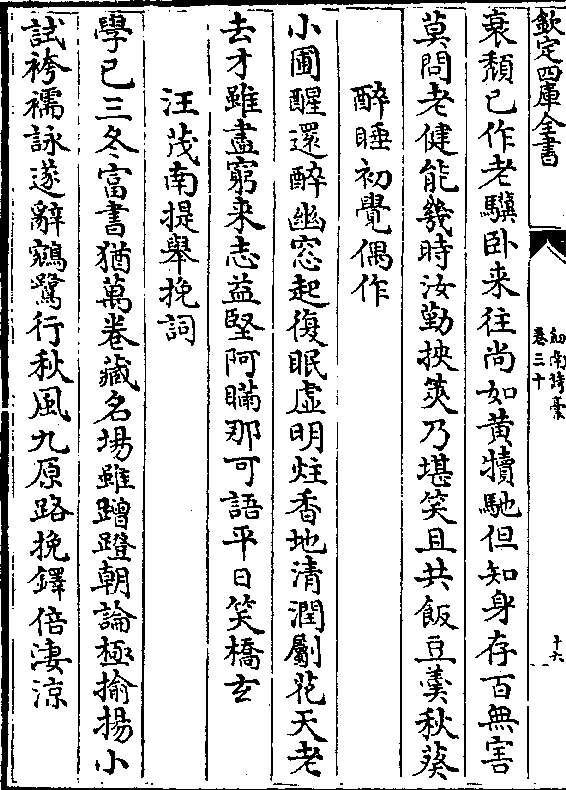 欽定四庫全書
劍南詩藁
卷三十
十六
衰頽已作老驥卧来往尚如黄犢馳但知身存百無害
莫問老健能幾時汝勤挾筴乃堪笑且共飯豆羹秋葵
醉睡初覺偶作
小圃醒還醉幽窓起復眠虚明炷香地清潤劚花天老
去才雖盡窮来志益堅阿瞞那可語平日笑橋玄
汪茂南提舉挽詞
學已三冬富書猶萬卷藏名場雖蹭蹬朝論極揄揚小
試袴襦詠遂辭鵷鷺行秋風九原路挽鐸倍淒涼